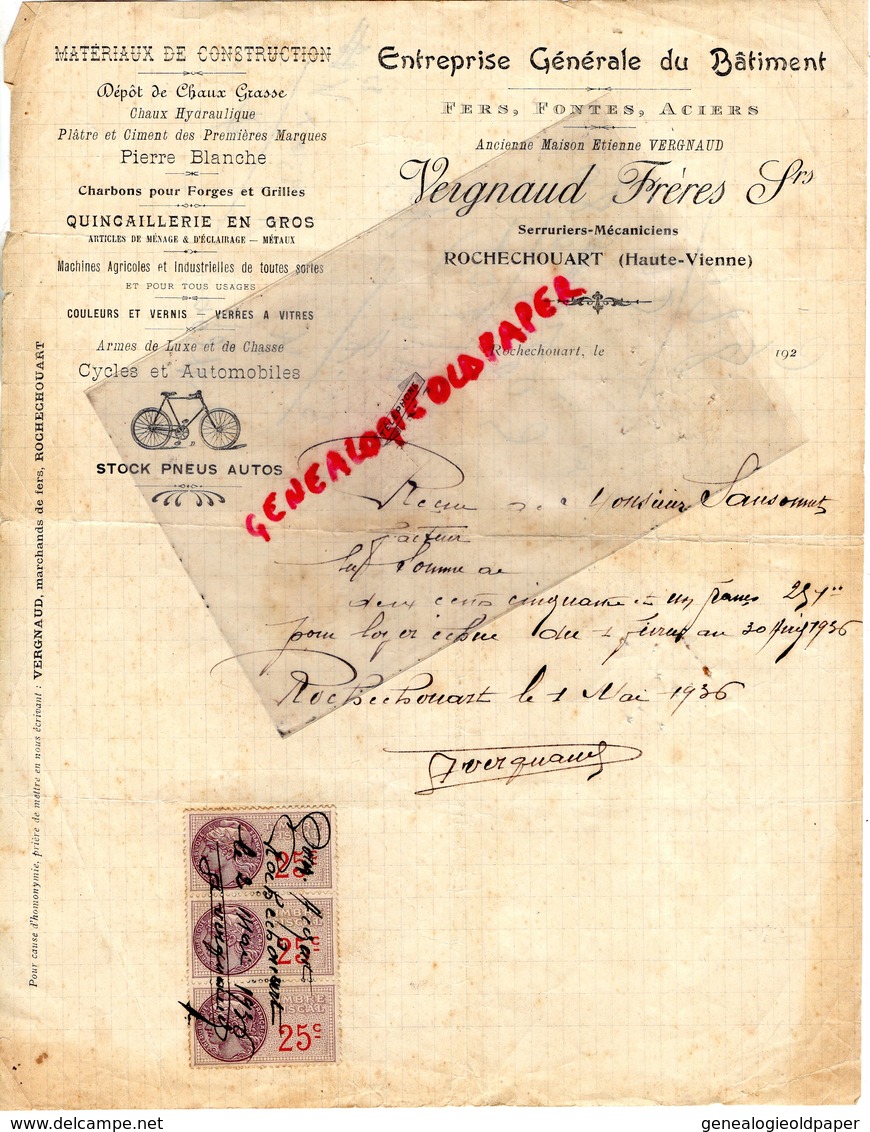 MATÉRIAUX DE CONSTRUCTION
Dépôt de Chaux Grasse
Chaux Hydraulique
Plâtre et Ciment des Premières Marques
Pierre Blanche
Charbons pour Forges et Grilles
QUINCAILLERIE EN GROS
ARTICLES DE MÉNAGE & D'ÉCLAIRAGE — MÉTAUX
Machines Agricoles et Industrielles de toutes sortes
ET POUR TOUS USAGES
COULEURS ET VERNIS — VERRES A VITRES
Armes de Luxe et de Chasse
Cycles et Automobiles
STOCK PNEUS AUTOS
Entreprise Générale du Bâtiment
FERS, FONTES, ACIERS
Ancienne Maison Etienne VERGNAUD
Vergnaud Frères Srs
Serruriers-Mécaniciens
ROCHECHOUART (Haute-Vienne)
Rochechouart, le 192
TÉLÉPHONE
GENEALOGIE OLDPAPER
Reçu de Monsieur Sansonnet
facteur
la somme de
deux cents cinquante et un francs 251
pour loyer échu du 1 février au 30 Avril 1936
Rochechouart le 1 Mai 1936
Vergnaud
Pour cause d'homonymie, prière de mettre en nous écrivant : VERGNAUD, marchands de fers, ROCHECHOUART
25c
TIMBRE FISCAL
25c
TIMBRE FISCAL
25c
Rochechouart
le 2 Mai 1936
Vergnaud
genealogieoldpaper